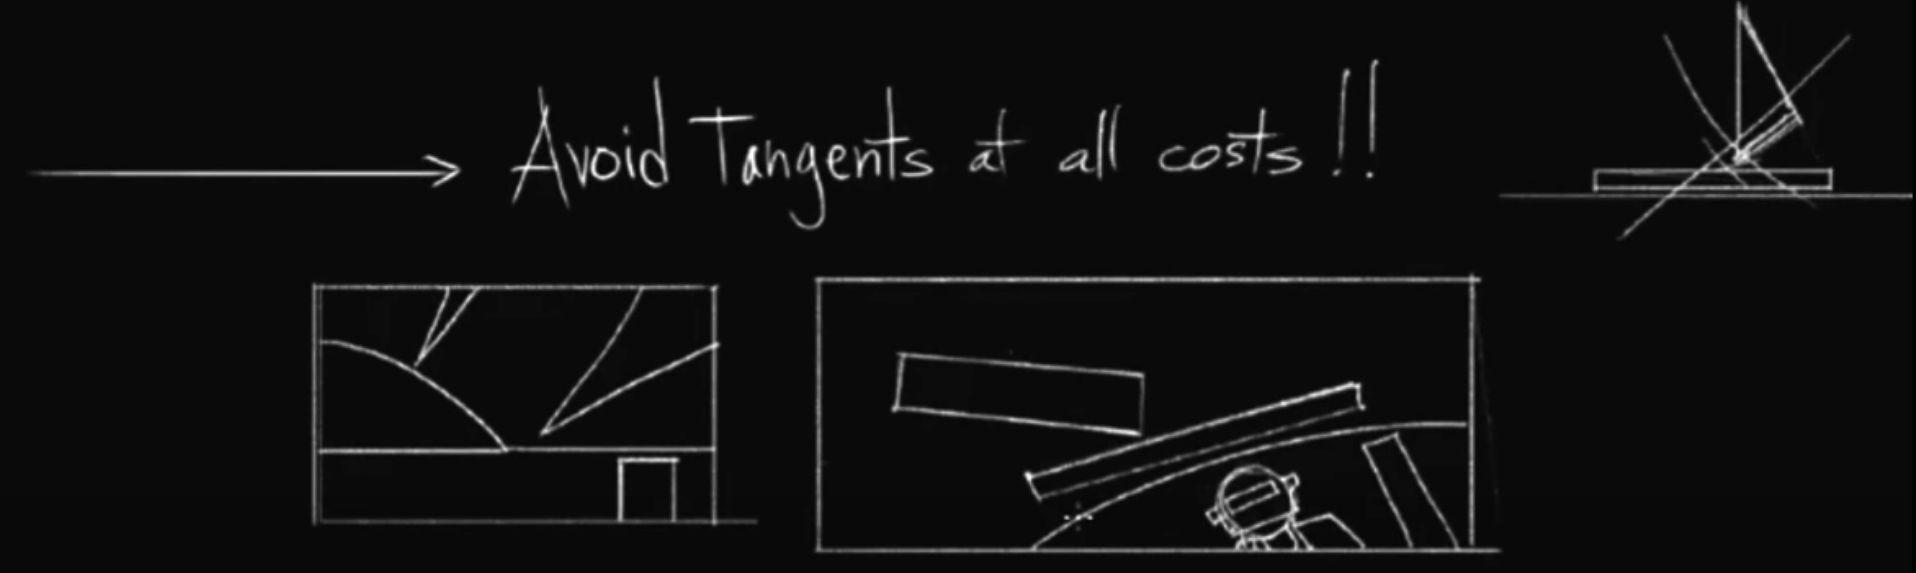 Avoid Tangents at all costs!!